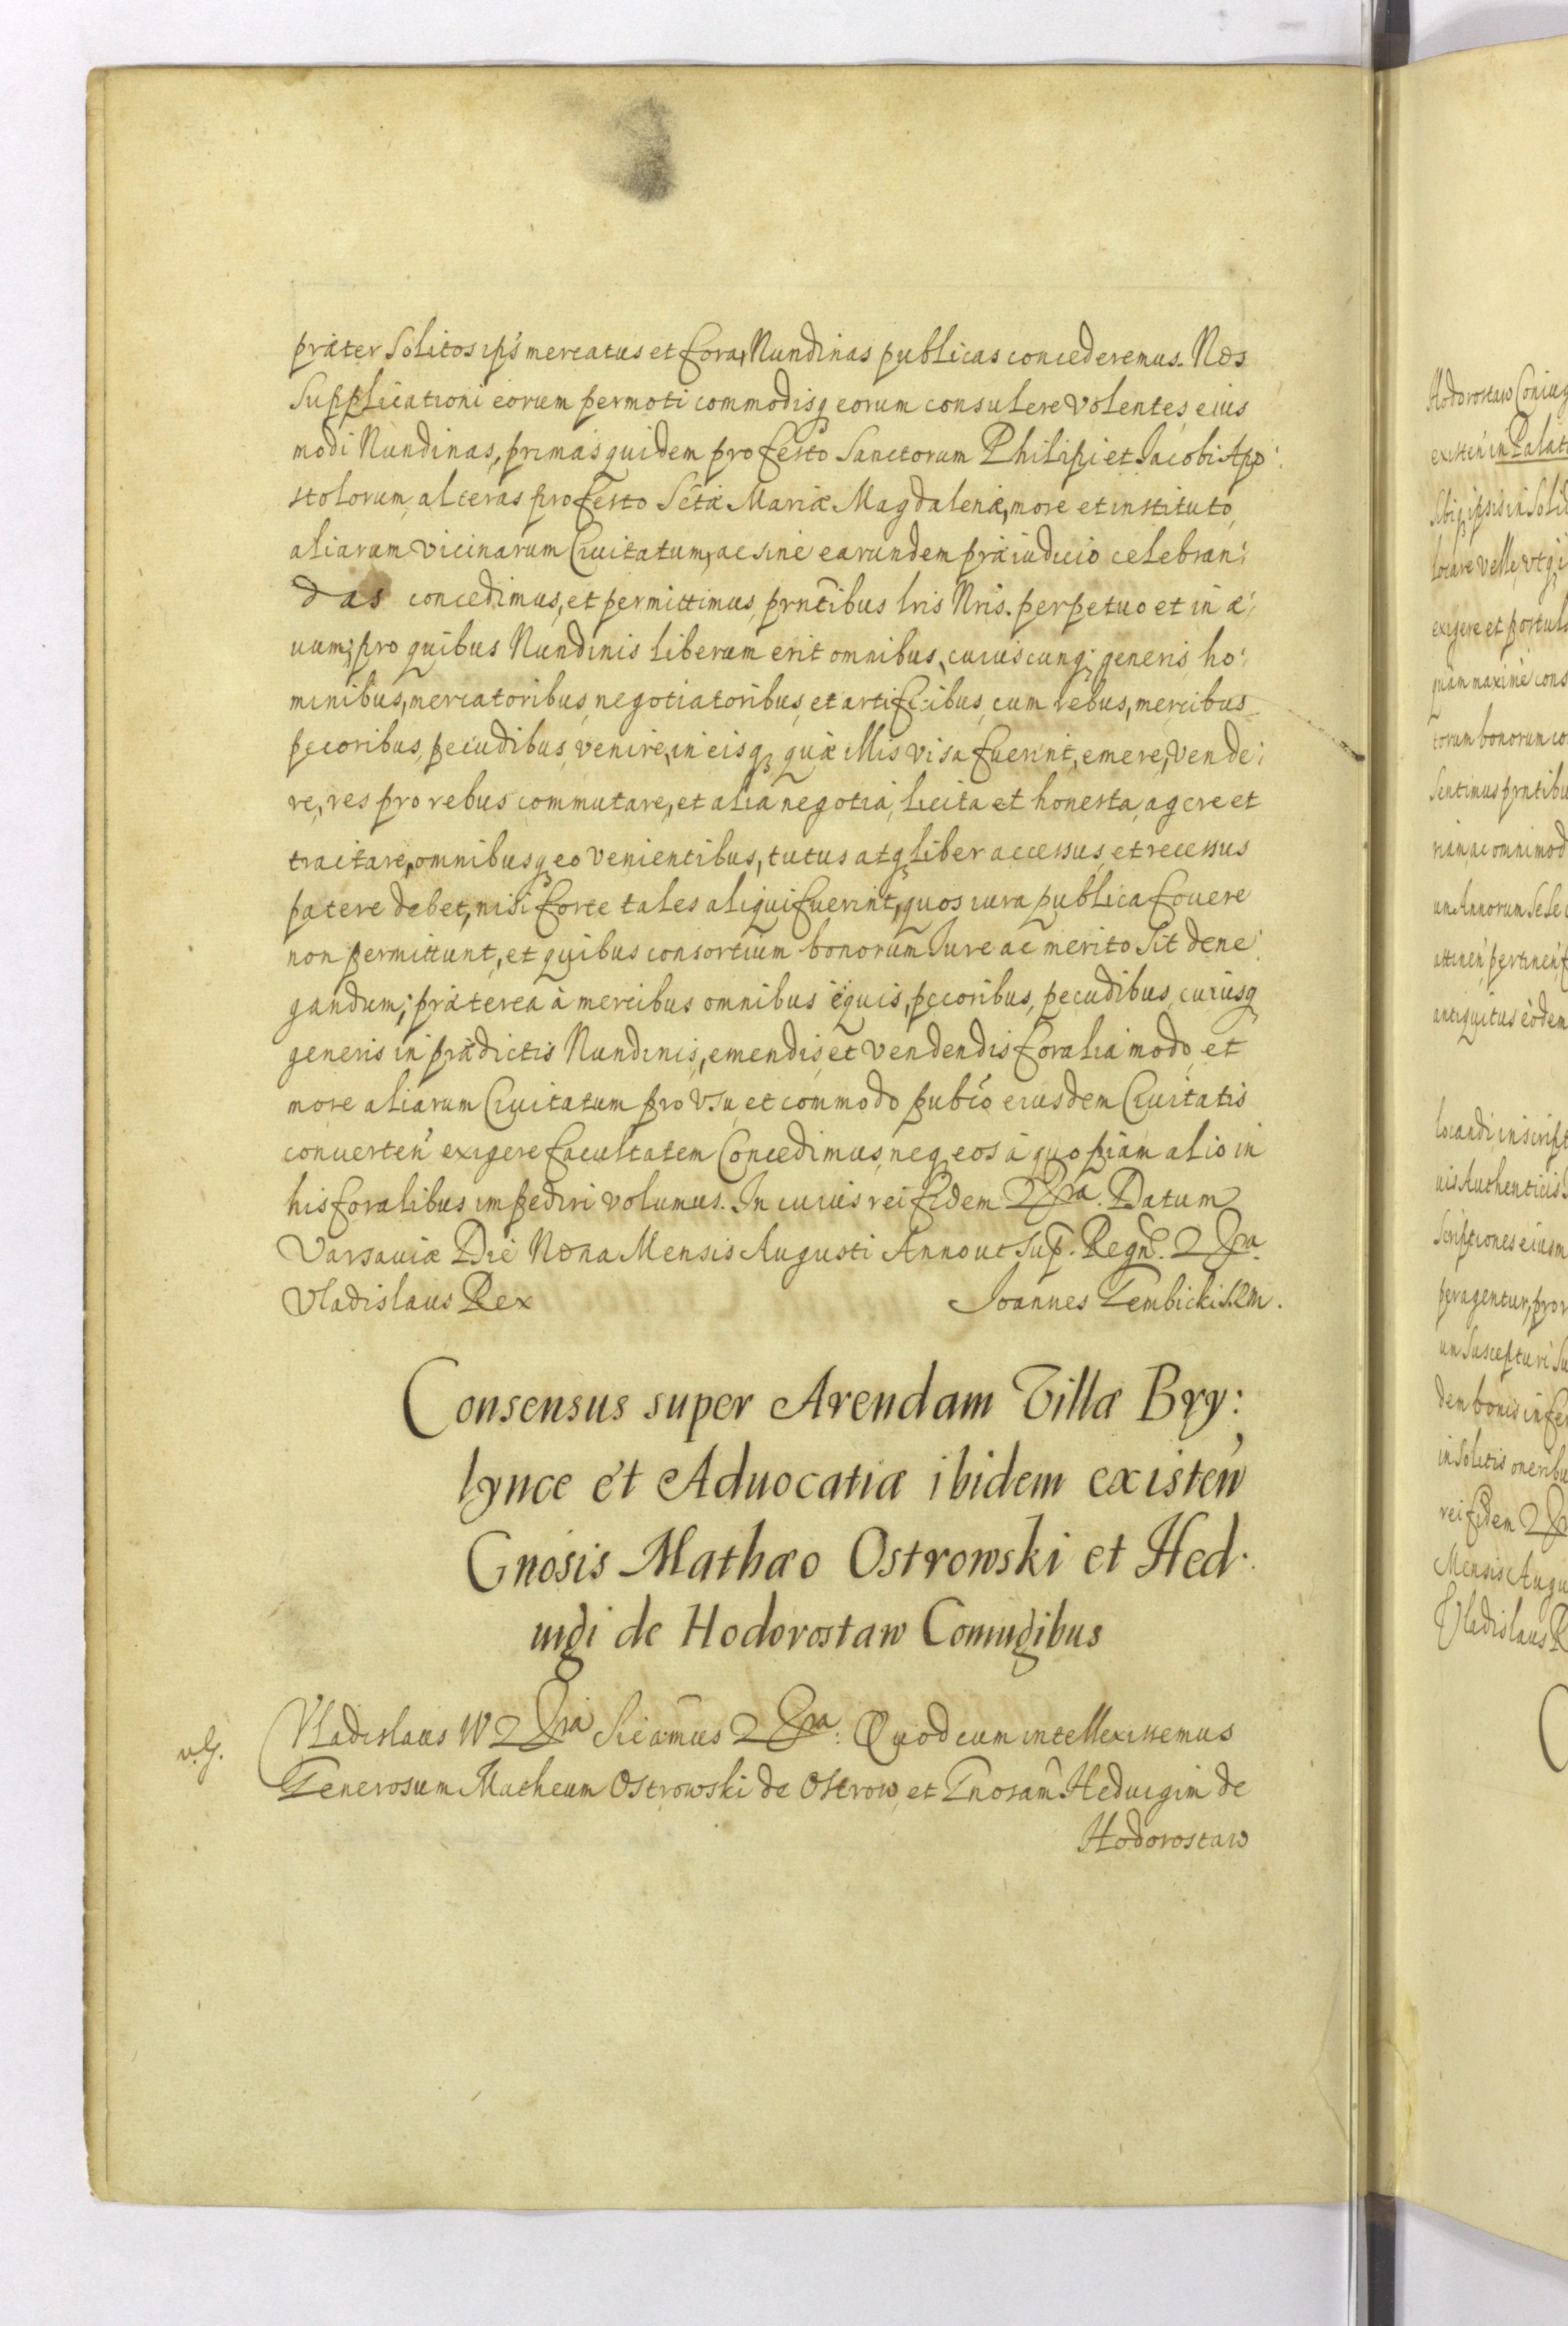 præter Solitos ip̃s mercatus et fora, Nundinas publicas concederemus. Nos
Supplicationi eorum permoti commodisq; eorum consulere volentes, eius
modi Nundinas, primas quidem pro festo Sanctorum Philipi et Jacobi App:
stolorum, alteras pro festo Sctæ Mariæ Magdalenæ, more et instituto
aliarum vicinarum Civitatum, ac sine earundem præiudicio celebran:
das concedimus, et permittimus, prñtibus lris Nris. perpetuo et in æ:
uum; pro quibus Nundinis liberum erit omnibus, cuiuscunq; generis, ho:
minibus, mercatoribus, negotiatoribus, et artificibus, cum rebus, mercibus
pecoribus, pecudibus, venire, in eisq; quæ illis visa fuerint, emere, vende:
re, res pro rebus commutare, et alia negotia, licita et honesta, agere et
tractare, omnibusq; eo venientibus, tutus atq; liber accessus, et recessus
patere debet, nisi forte tales aliqui fuerint, quos iura publica fouere
non permittunt, et quibus consortium bonorum Jure ac merito sit dene:
gandum; præterea à mercibus omnibus equis, pecoribus, pecudibus, cuiusq;
generis in prædictis Nundinis, emendis, et vendendis foralia modo, et
more aliarum Civitatum pro vsu, et commodo pubco eiusdem Civitatis
conuerten̄ exigere facultatem Concedimus, neq; eos à quopiam alio in
his foralibus impediri volumus. In cuius rei fidem 2 Xra. Datum
Varsauiæ Die Nona Mensis Augusti Anno ut sup. Regn̄. 2 Xra.
Vladislaus Rex Joannes Gembicki S.R.M.
Consensus super Arendam Villæ Bry:
lynce et Aduocatiæ ibidem existen̄
Gnosis Mathæo Ostrowski et Hed:
uigi de Hodorostaw Coniugibus
Vladislaus IV 2 Xra Sicamus 2 Xra. Quod cum intellexissemus
Generosum Matheum Ostrowski de Ostrow, et Gnosam Heduigim de
Hodorostaw
Hodorostaw Coniug
existen̄ in Palat
Sibiq; ipsis in Solid
locare velle, vtq; i
exigere et postula
quam maxime cons
torum bonorum co
sentimus prntibu
riam, ac omnimod
um Annorum sese
attinen̄, pertinen̄
antiquitus eodem
locandi, inscript
uis Authenticis
Scriptiones eiusm
peragentur, pro
um suscepturi Su
dem bonis infer
insolitis oneribu
rei fidem 2 Xr
Mensis Augu
Vladislaus R